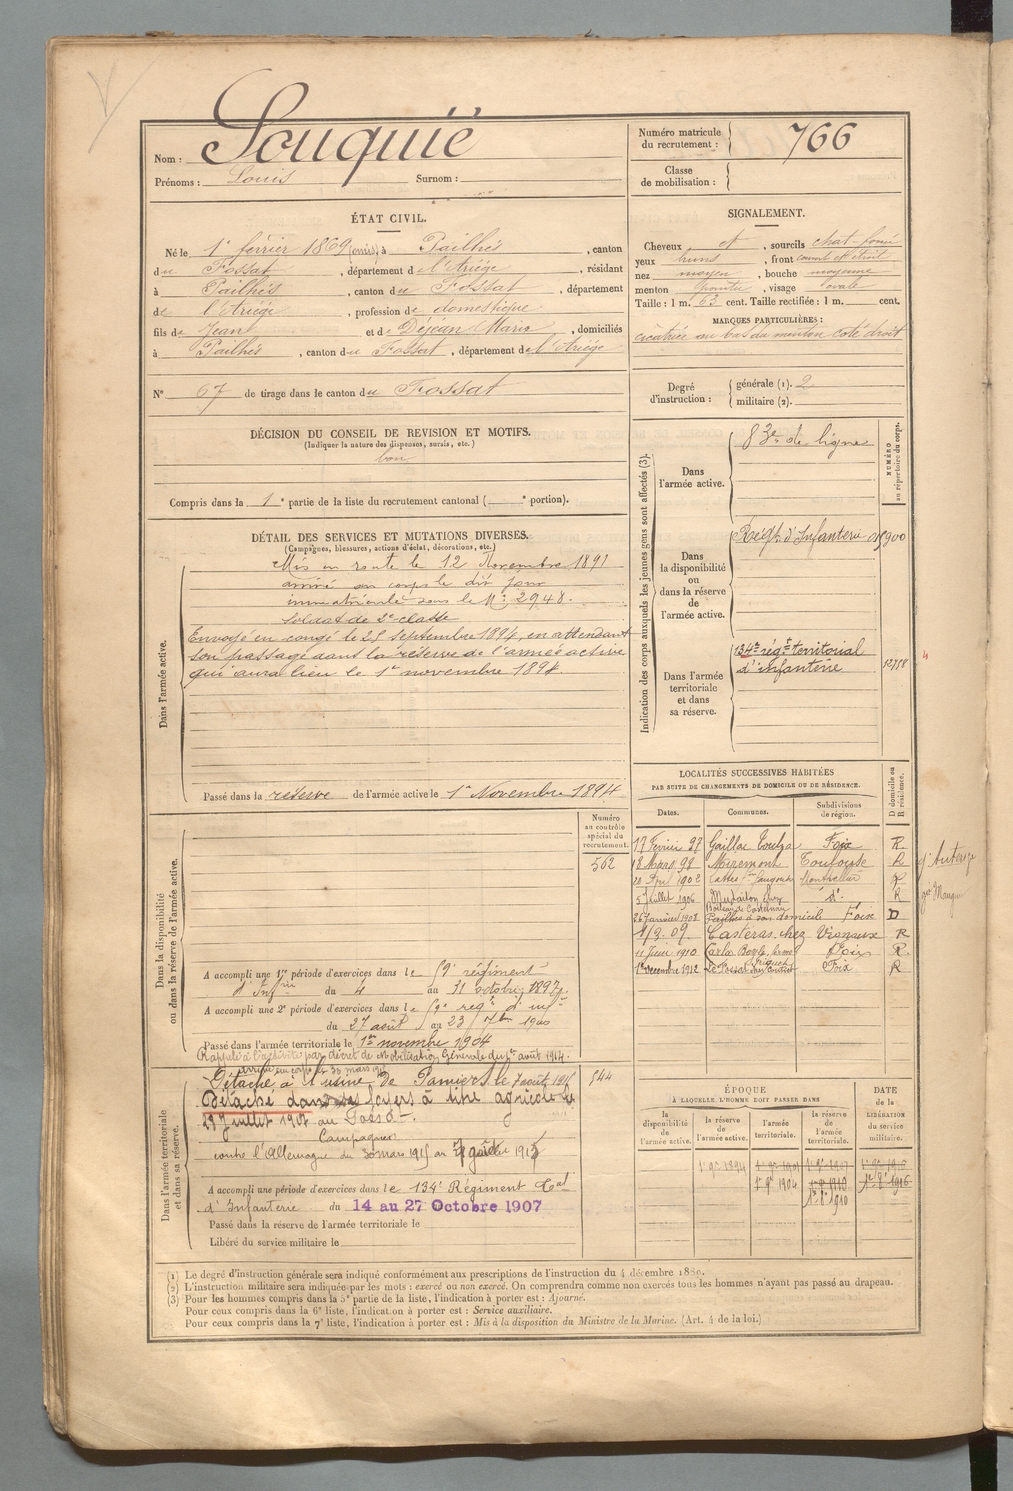 Nom : Souquië
Prénoms : Louis Surnom :
Numéro matricule du recrutement : 766
Classe de mobilisation :
ÉTAT CIVIL.
Né le 1er février 1869 (omis) à Pailhés, canton
du Fossat, département de l'Ariége, résidant
à Pailhés, canton du Fossat, département
de l'Ariégé, profession de domestique
fils de Jean et de Déjean Marie, domiciliés
à Pailhés, canton du Fossat, département de l'Ariége
SIGNALEMENT.
Cheveux et, sourcils chat-foncé
yeux bruns, front couvert et étroit
nez moyen, bouche moyenne
menton pointu, visage ovale
Taille : 1 m. 63 cent. Taille rectifiée : 1 m. cent.
MARQUES PARTICULIÈRES :
cicatrice au bas du menton coté droit
N° 67 de tirage dans le canton du Fossat
Degré d'instruction : générale (1). 2
militaire (2).
DÉCISION DU CONSEIL DE REVISION ET MOTIFS.
(Indiquer la nature des dispenses, sursis, etc.)
bon
Compris dans la 1e partie de la liste du recrutement cantonal ( e portion).
DÉTAIL DES SERVICES ET MUTATIONS DIVERSES.
(Campagnes, blessures, actions d'éclat, décorations, etc.)
Dans l'armée active.
Mis en route le 12 Novembre 1891
arrivé au corps le dit jour
immatriculé sous le N° 2948.
Soldat de 2e classe
Envoyé en congé le 25 septembre 1894, en attendant
son passage dans la réserve de l'armée active
qui aura lieu le 1er novembre 1894
Passé dans la réserve de l'armée active le 1er Novembre 1894
Indication des corps auxquels les jeunes gens sont affectés (3).
NUMÉRO au répertoire du corps.
Dans l'armée active.
83e de ligne
Dans la disponibilité ou dans la réserve de l'armée active.
Régt. d'Infanterie
Dans l'armée territoriale et dans sa réserve.
134e régt territorial
d'Infanterie
12758
LOCALITÉS SUCCESSIVES HABITÉES
PAR SUITE DE CHANGEMENTS DE DOMICILE OU DE RÉSIDENCE.
Dates. Communes. Subdivisions de région. D domicile ou R résidence.
17 Février 97 Gaillac Toulza Foix R
18 Mars 98 Miremont Toulouse R
20 Avril 1902 Montpellier R
5 Juillet 1906 d° R
26 janvier 1908 Pailhès à son domicile Foix D
4/3 09 Casteras chez Vignaux R
11 Juin 1910 Carla Bayle Foix R
1er decembre 1912 Le Fossat Foix R
Dans la disponibilité ou dans la réserve de l'armée active.
Numéro au contrôle spécial du recrutement.
502
A accompli une 1re période d'exercices dans le 59e régiment
d'Infrie du 4 au 31 octobre 1897.
A accompli une 2e période d'exercices dans le 59e regt d'infie
du 27 août au 23 7bre 1900
Passé dans l'armée territoriale le 1er novembre 1904
Rappelé à l'activité par décret de Mobilisation Générale du 1er août 1914.
arrivé au corps le 30 mars 1915
Dans l'armée territoriale et dans sa réserve.
544
Détaché à l'usine de Pamiers le 7 août 1915
Détaché dans ses foyers à titre agricole le
29 Juillet 1917 au Fossat.
Campagnes
contre l'Allemagne du 30 mars 1915 au
A accompli une période d'exercices dans le 134e Régiment Tal
d'Infanterie du 14 au 27 Octobre 1907
Passé dans la réserve de l'armée territoriale le
Libéré du service militaire le
ÉPOQUE
À LAQUELLE L'HOMME DOIT PASSER DANS
DATE de la LIBÉRATION du service militaire.
la disponibilité de l'armée active.
la réserve de l'armée active.
l'armée territoriale.
la réserve de l'armée territoriale.
1er 9bre 1894
1er 9bre 1904
(1) Le degré d'instruction générale sera indiqué conformément aux prescriptions de l'instruction du 4 décembre 1889.
(2) L'instruction militaire sera indiquée par les mots : exercé ou non exercé. On comprendra comme non exercés tous les hommes n'ayant pas passé au drapeau.
(3) Pour les hommes compris dans la 5e partie de la liste, l'indication à porter est : Ajourné.
Pour ceux compris dans la 6e liste, l'indication à porter est : Service auxiliaire.
Pour ceux compris dans la 7e liste, l'indication à porter est : Mis à la disposition du Ministre de la Marine. (Art. 4 de la loi.)